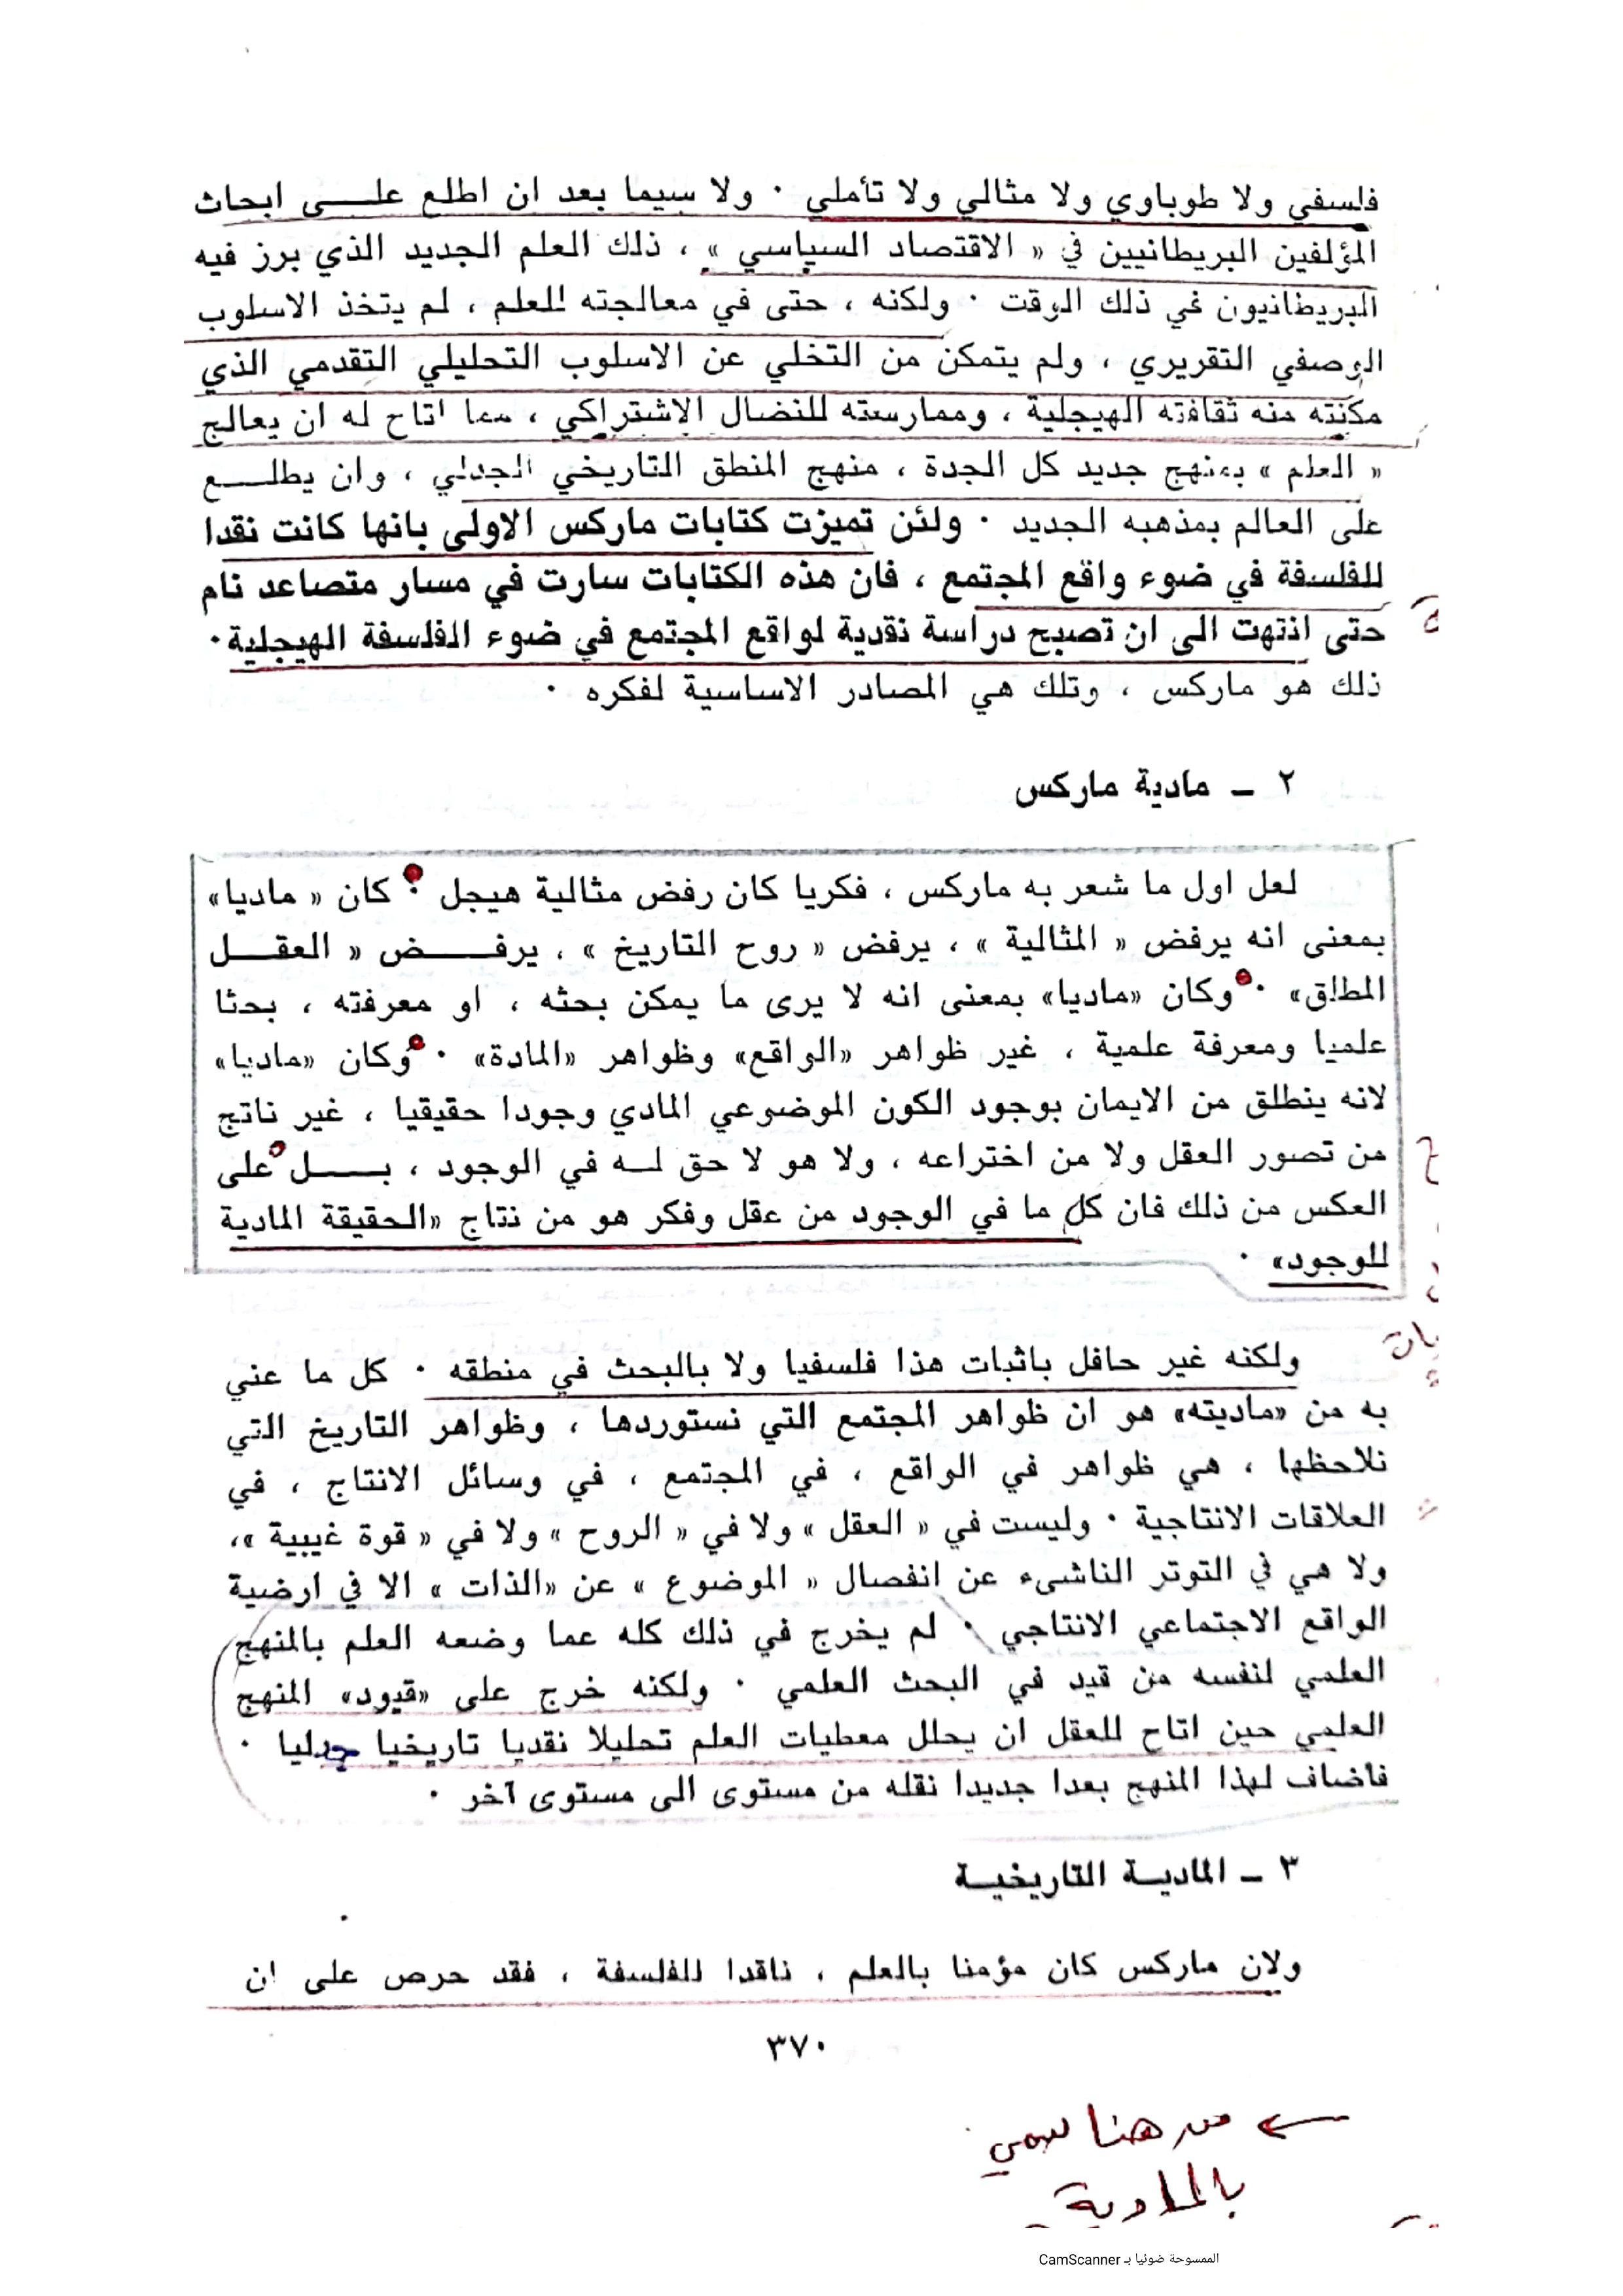 فلسفي ولا طوباوي ولا مثالي ولا تأملي · ولا سيما بعد ان اطلع علـــى ابحاث
المؤلفين البريطانيين في « الاقتصاد السياسي » ، ذلك العلم الجديد الذي برز فيه
البريطانيون في ذلك الوقت · ولكنه ، حتى في معالجته للعلم ، لم يتخذ الاسلوب
الوصفي التقريري ، ولم يتمكن من التخلي عن الاسلوب التحليلي التقدمي الذي
مكنته منه ثقافته الهيجلية ، وممارسته للنضال الاشتراكي ، مما اتاح له ان يعالج
« العلم » بمنهج جديد كل الجدة ، منهج المنطق التاريخي الجدلي ، وان يطلـــع
على العالم بمذهبه الجديد · ولئن تميزت كتابات ماركس الاولى بانها كانت نقدا
للفلسفة في ضوء واقع المجتمع ، فان هذه الكتابات سارت في مسار متصاعد نام
حتى انتهت الى ان تصبح دراسة نقدية لواقع المجتمع في ضوء الفلسفة الهيجلية ·
ذلك هو ماركس ، وتلك هي المصادر الاساسية لفكره ·
٢ ــ مادية ماركس
لعل اول ما شعر به ماركس ، فكريا كان رفض مثالية هيجل · كان « ماديا»
بمعنى انه يرفض « المثالية » ، يرفض « روح التاريخ » ، يرفـــض « العقـــل
المطلق» · وكان «ماديا» بمعنى انه لا يرى ما يمكن بحثه ، او معرفته ، بحثا
علميا ومعرفة علمية ، غير ظواهر «الواقع» وظواهر «المادة» · وكان «ماديا»
لانه ينطلق من الايمان بوجود الكون الموضوعي المادي وجودا حقيقيا ، غير ناتج
من تصور العقل ولا من اختراعه ، ولا هو لا حق لـــه في الوجود ، بـــل على
العكس من ذلك فان كل ما في الوجود من عقل وفكر هو من نتاج «الحقيقة المادية
للوجود» ·
ولكنه غير حافل باثبات هذا فلسفيا ولا بالبحث في منطقه · كل ما عني
به من «ماديته» هو ان ظواهر المجتمع التي نستوردها ، وظواهر التاريخ التي
نلاحظها ، هي ظواهر في الواقع ، في المجتمع ، في وسائل الانتاج ، في
العلاقات الانتاجية · وليست في « العقل » ولا في « الروح » ولا في « قوة غيبية »،
ولا هي في التوتر الناشىء عن انفصال « الموضوع » عن «الذات » الا في ارضية
الواقع الاجتماعي الانتاجي · لم يخرج في ذلك كله عما وضعه العلم بالمنهج
العلمي لنفسه من قيد في البحث العلمي · ولكنه خرج على «قيود» المنهج
العلمي حين اتاح للعقل ان يحلل معطيات العلم تحليلا نقديا تاريخيا جدليا ·
فاضاف لهذا المنهج بعدا جديدا نقله من مستوى الى مستوى آخر ·
٣ ــ الماديـة التاريخيـة
ولان ماركس كان مؤمنا بالعلم ، ناقدا للفلسفة ، فقد حرص على ان
٣٧٠
من هنا سمي
بالمادية
الممسوحة ضوئيا بـ CamScanner